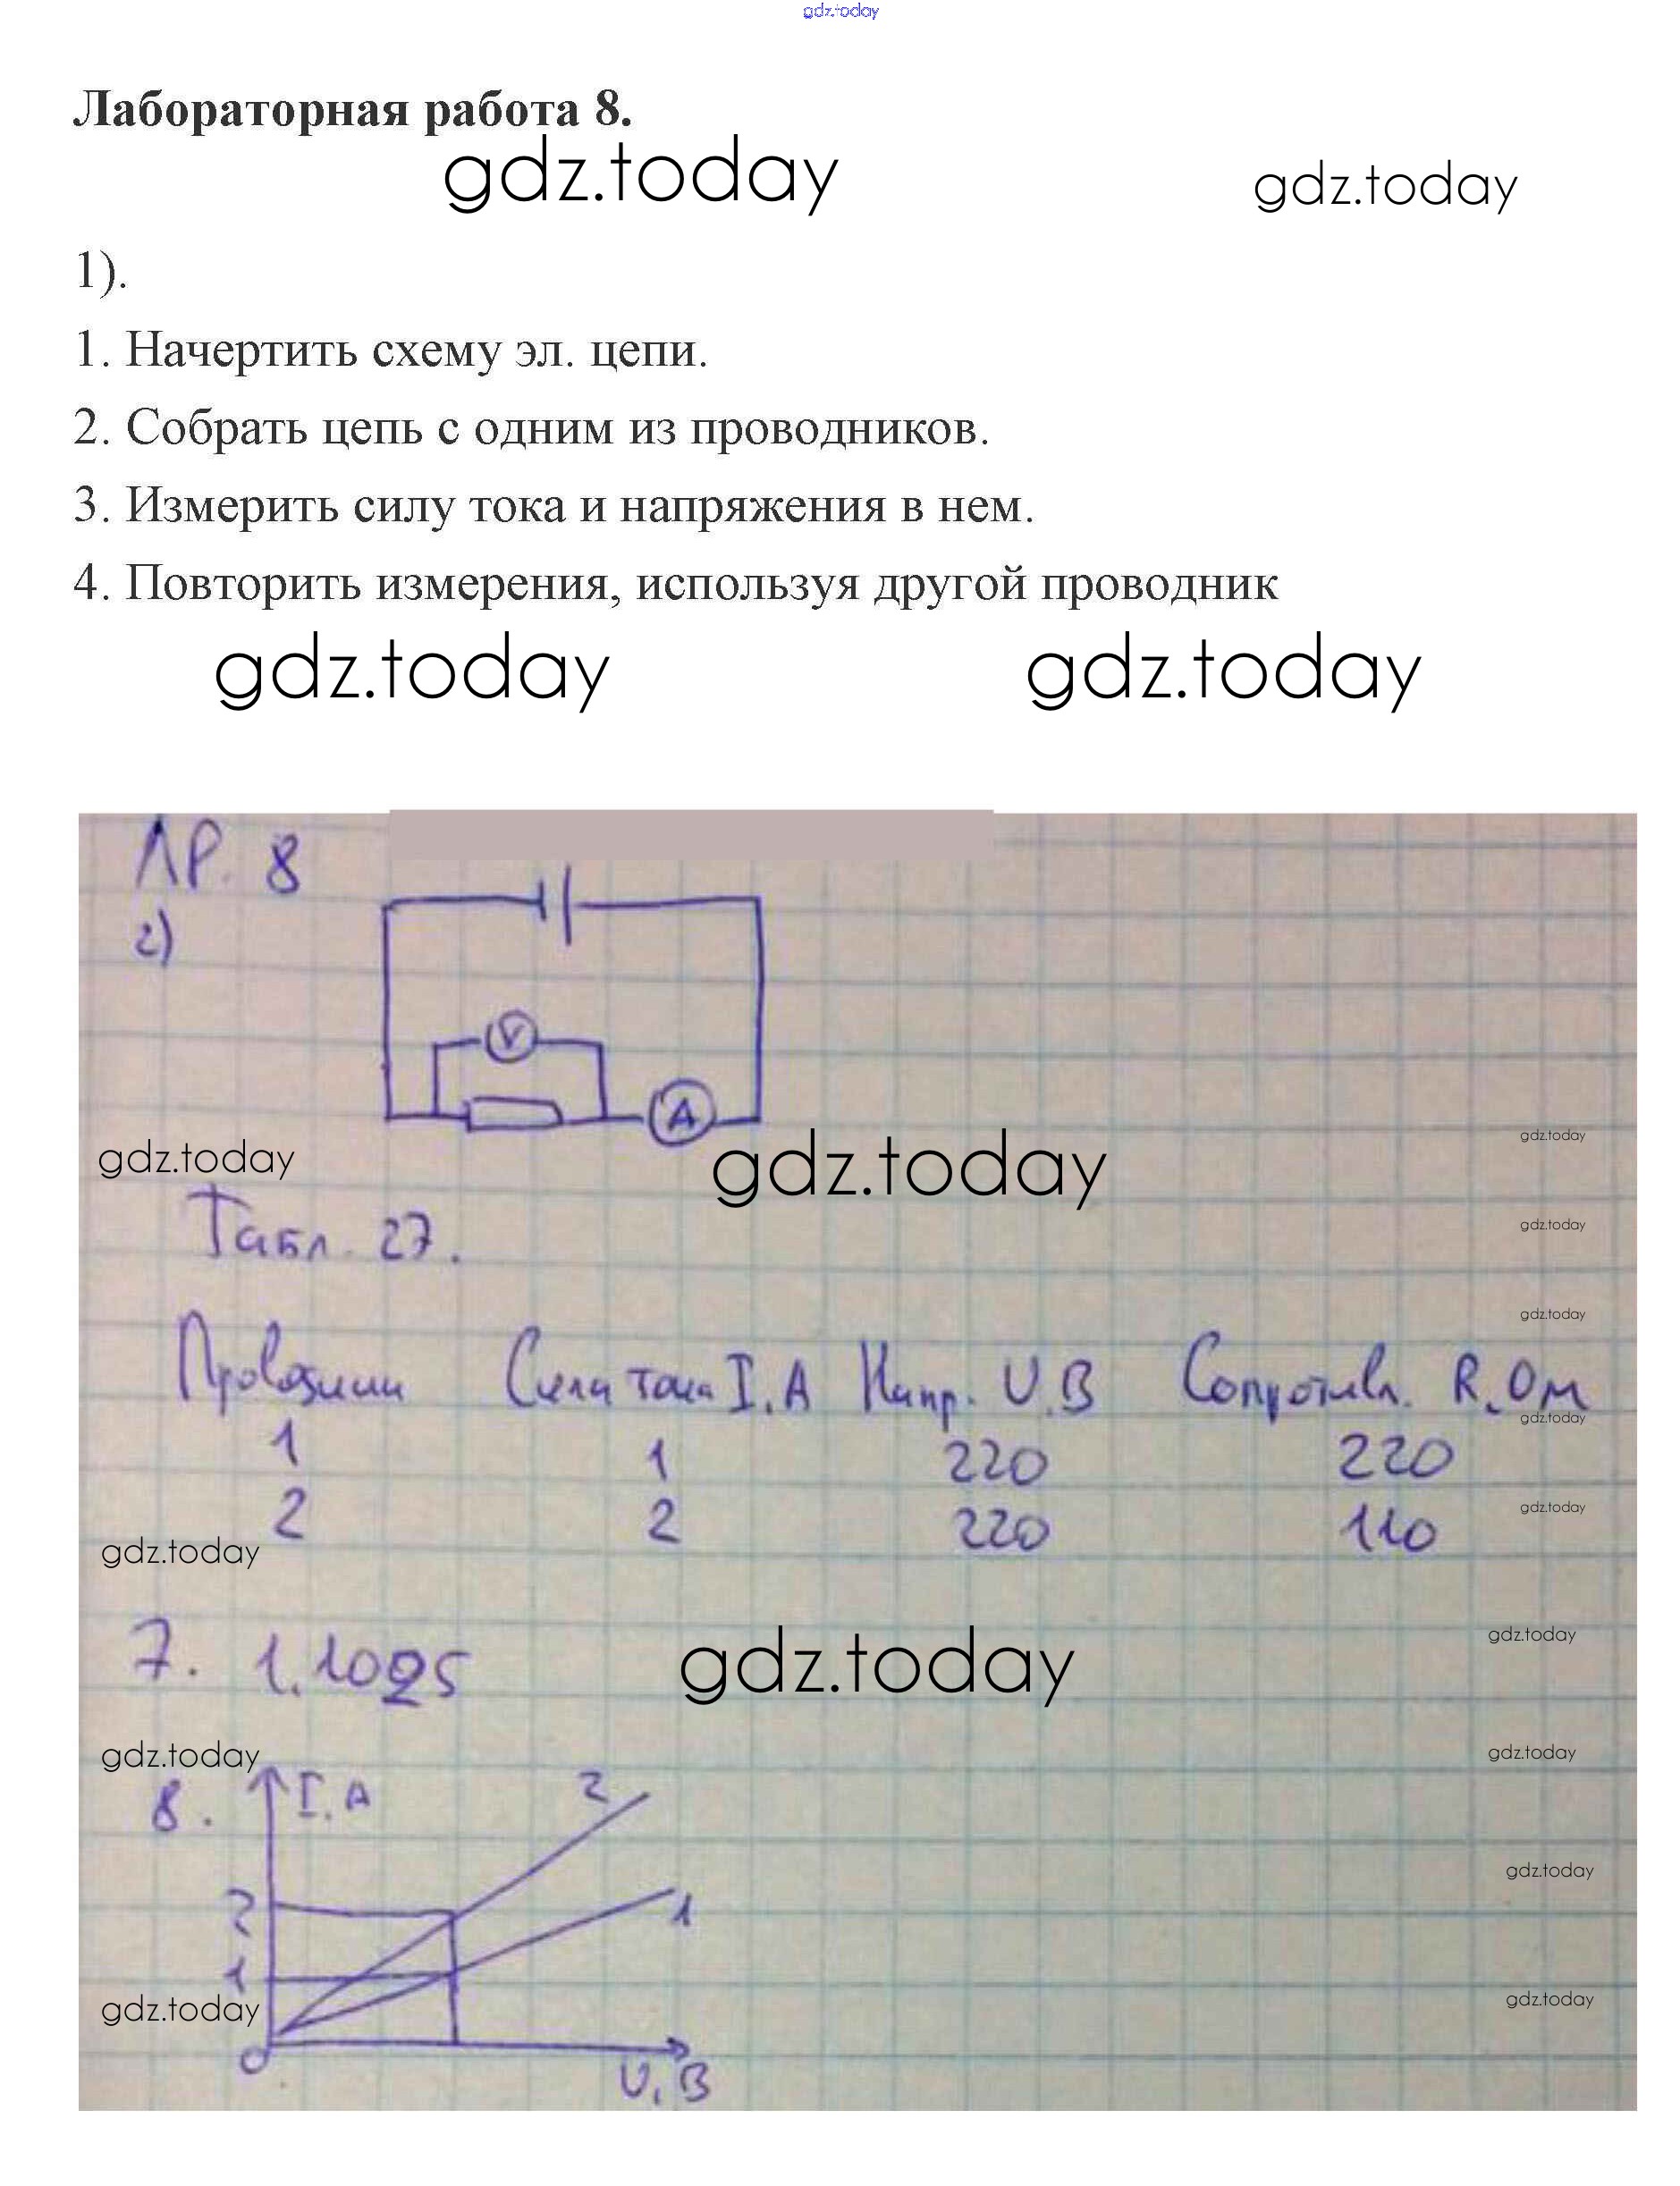 gdz.today
Лабораторная работа 8.
gdz.today gdz.today
1).
1. Начертить схему эл. цепи.
2. Собрать цепь с одним из проводников.
3. Измерить силу тока и напряжения в нем.
4. Повторить измерения, используя другой проводник
gdz.today gdz.today
ЛР. 8
2)
V
A
gdz.today gdz.today gdz.today
Табл. 27.
gdz.today
gdz.today
Проводники Сила тока I, А Напр. U, В Сопротивл. R, Ом
gdz.today
1 1 220 220
2 2 220 110
gdz.today
gdz.today
7. 1.
gdz.today gdz.today
gdz.today gdz.today
8. I, А 2
gdz.today
2 1
1
gdz.today gdz.today
0 U, В